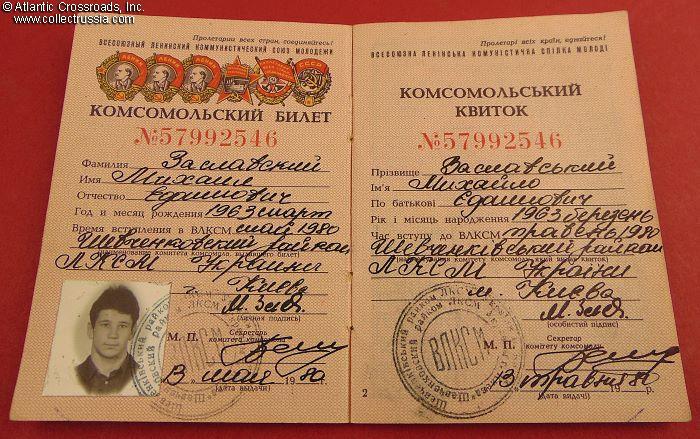 © Atlantic Crossroads, Inc.
www.collectrussia.com
Пролетарии всех стран, соединяйтесь!
ВСЕСОЮЗНЫЙ ЛЕНИНСКИЙ КОММУНИСТИЧЕСКИЙ СОЮЗ МОЛОДЕЖИ
КОМСОМОЛЬСКИЙ БИЛЕТ
№57992546
Фамилия Заславский
Имя Михаил
Отчество
Год и месяц рождения 1963 март
Время вступления в ВЛКСМ май 1980
Шевченковский райком
(наименование комитета комсомола, выдавшего билет)
ЛКСМ Украины
г. Киева
(личная подпись)
М. П.
Секретарь
комитета комсомола
13 мая 1980
(дата выдачи)
ВЛКСМ
Пролетарі всіх країн, єднайтеся!
ВСЕСОЮЗНА ЛЕНІНСЬКА КОМУНІСТИЧНА СПІЛКА МОЛОДІ
КОМСОМОЛЬСЬКИЙ
КВИТОК
№57992546
Прізвище Заславський
Ім'я Михайло
По батькові
Рік і місяць народження 1963 березень
Час вступу до ВЛКСМ травень 1980
Шевченківський райком
ЛКСМ України
м. Києва
(особистий підпис)
М. П.
Секретар
комітету комсомолу
13 травня 1980 р.
(дата видачі)
ВЛКСМ
2